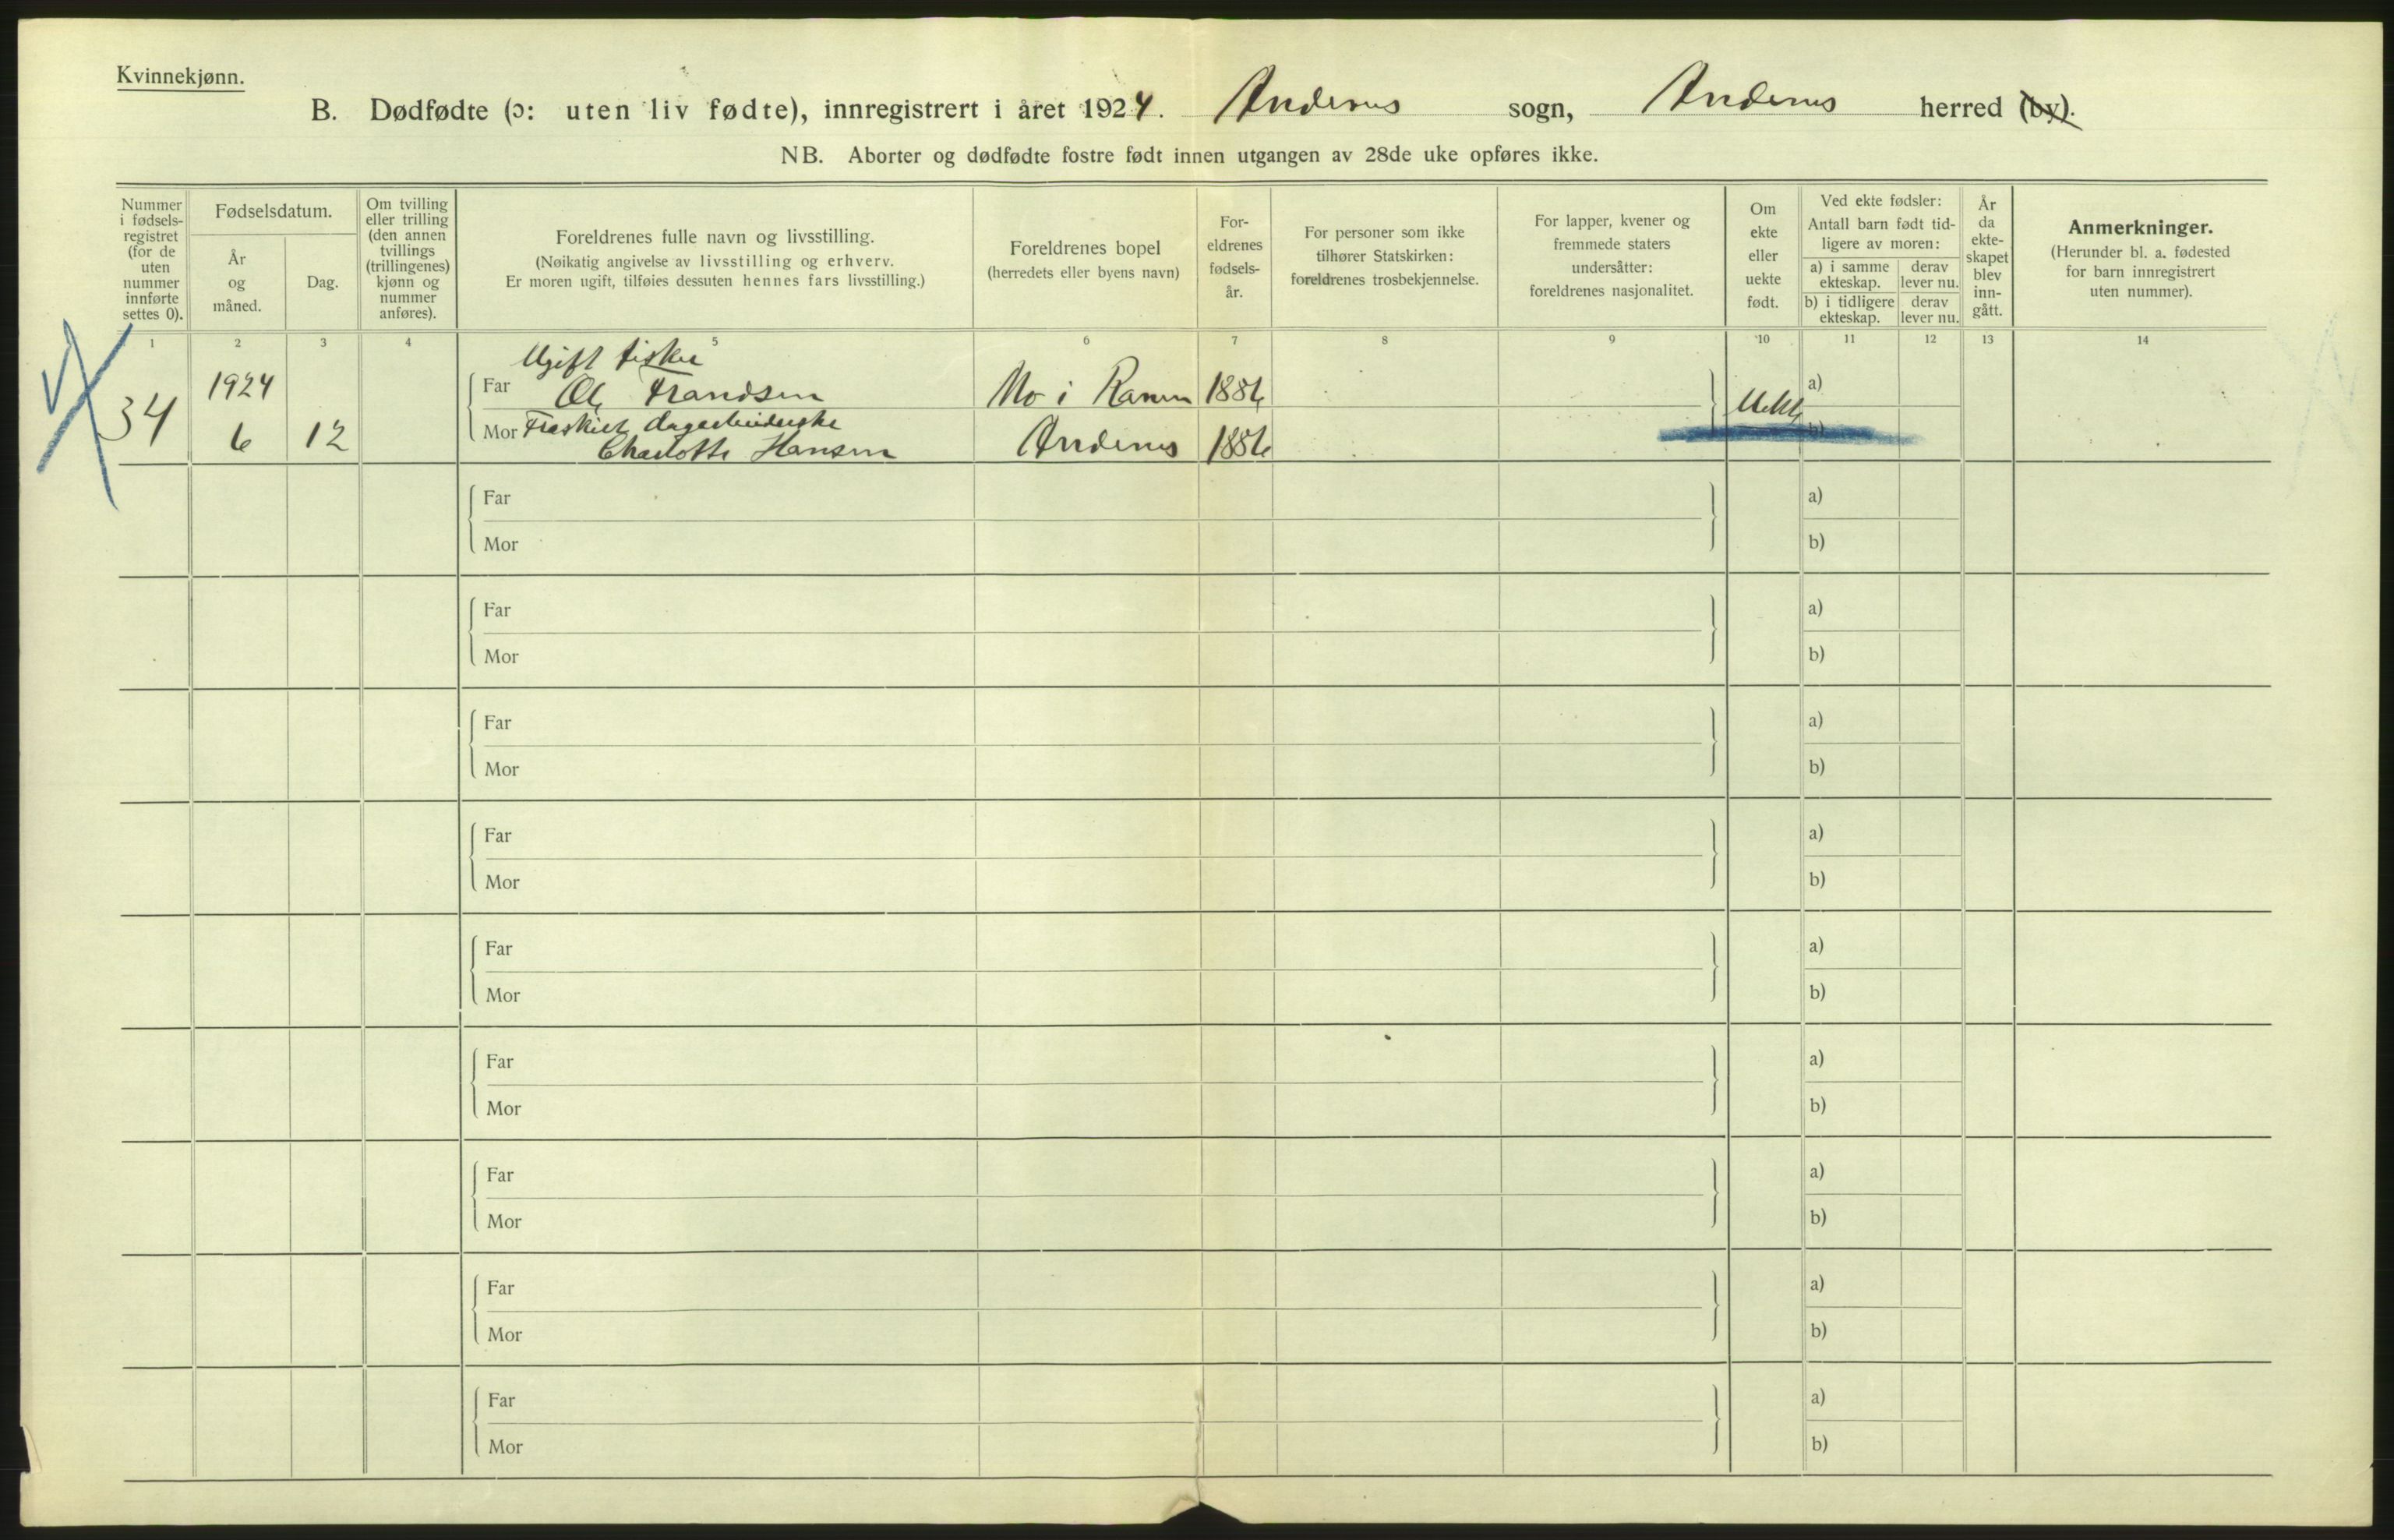 Kvinnekjønn.
B. Dødfødte (ɔ: uten liv fødte), innregistrert i året 1924. Andenes sogn, Andenes herred (by).
NB. Aborter og dødfødte fostre født innen utgangen av 28de uke opføres ikke.
Nummer i fødsels-registret (for de uten nummer innførte settes 0).
Fødselsdatum.
År og måned.
Dag.
Om tvilling eller trilling (den annen tvillings (trillingenes) kjønn og nummer anføres).
Foreldrenes fulle navn og livsstilling.
(Nøiaktig angivelse av livsstilling og erhverv.
Er moren ugift, tilføies dessuten hennes fars livsstilling.)
Foreldrenes bopel
(herredets eller byens navn)
For-eldrenes fødsels-år.
For personer som ikke tilhører Statskirken: foreldrenes trosbekjennelse.
For lapper, kvener og fremmede staters undersåtter: foreldrenes nasjonalitet.
Om ekte eller uekte født.
Ved ekte fødsler:
Antall barn født tid-ligere av moren:
a) i samme ekteskap.
derav lever nu.
b) i tidligere ekteskap.
derav lever nu.
År da ekte-skapet blev inn-gått.
Anmerkninger.
(Herunder bl. a. fødested for barn innregistrert uten nummer).
1 2 3 4 5 6 7 8 9 10 11 12 13 14
Ugift fisker
34 1924 Far Ole Frandsen Mo i Ranen 1886 Uekte a)
Fraskilt dagarbeiderske
6 12 Mor Charlotte Hansen Andenes 1886 b)
Far a)
Mor b)
Far a)
Mor b)
Far a)
Mor b)
Far a)
Mor b)
Far a)
Mor b)
Far a)
Mor b)
Far a)
Mor b)
Far a)
Mor b)
Far a)
Mor b)